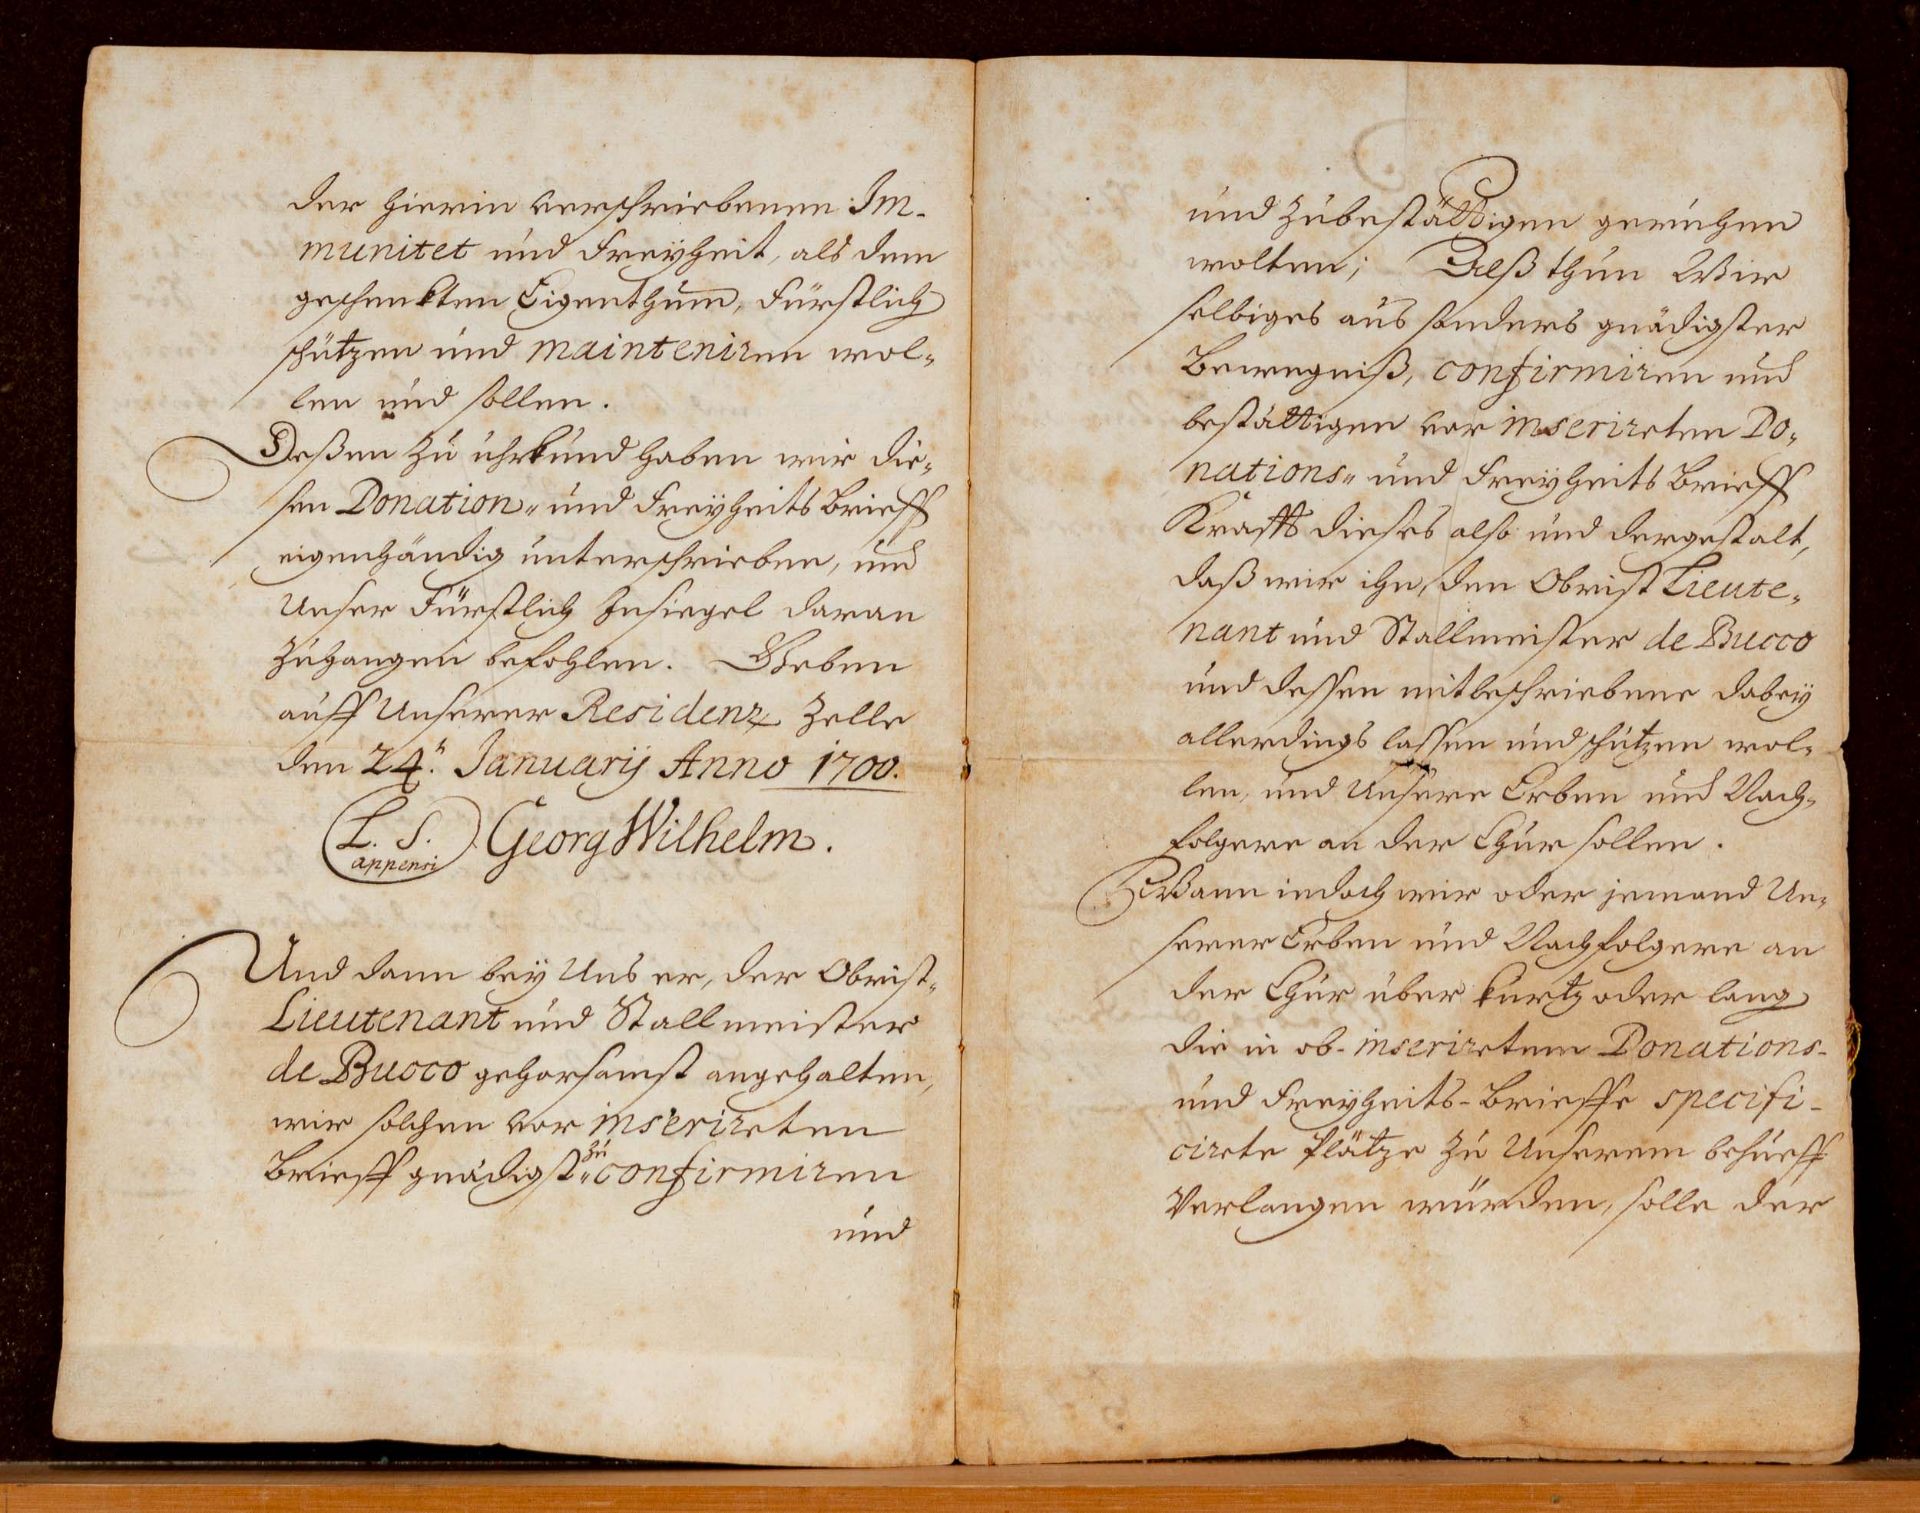 der hierin verschriebenen Im-
munitet und Freyheit, als dem
geschenkten Eigenthum, Fürstlich
schützen und mainteniren wol-
len und sollen.
Deßen zu uhrkund haben wir die-
sen Donation- und Freyheits Brieff
eigenhändig unterschrieben, und
Unser Fürstlich Insiegel daran
zuhangen befohlen. Geben
auff Unserer Residentz Zelle
den 24. Januarij Anno 1700.
L. S. appensi Georg Wilhelm.
Und dann bey Uns er, der Obrist-
Lieutenant und Stallmeister
de Bucco gehorsamst angehalten,
wir solchen vor inserirten
Brieff gnädigst zu confirmiren
und
und zubestättigen geruhen
wolten; Alß thun Wir
selbiges aus sonders gnädigster
Bewegniß, confirmiren und
bestättigen vor inserirten Do-
nations- und Freyheits Brieff
Krafft dieses also und dergestalt,
daß wir ihn, den Obrist Lieute-
nant und Stallmeister de Bucco
und dessen mitbeschriebene dabey
allerdings lassen und schützen wol-
len, und Unsere Erben und Nach-
folgere an der Chur sollen.
Wann iedoch wir oder jemand Un-
serer Erben und Nachfolgere an
der Chur über kurtz oder lang
die in ob-inserirtem Donations-
und Freyheits-Brieffe specifi-
cirte Plätze zu Unserem behueff
Verlangen würden, solle der